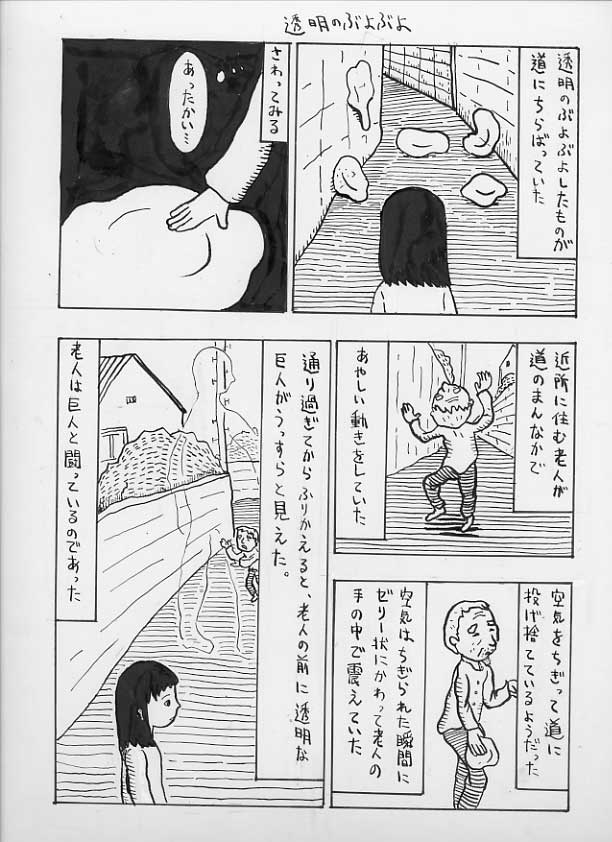 透明のぶよぶよ
透明のぶよぶよしたものが
道にちらばっていた
さわってみる
あったかい…
近所に住む老人が
道のまんなかで
あやしい動きをしていた
空気をちぎって道に
投げ捨てているようだった
空気はちぎられた瞬間に
ゼリー状にかわって老人の
手の中で震えていた
通り過ぎてからふりかえると、老人の前に透明な
巨人がうっすらと見えた。
老人は巨人と闘っているのであった